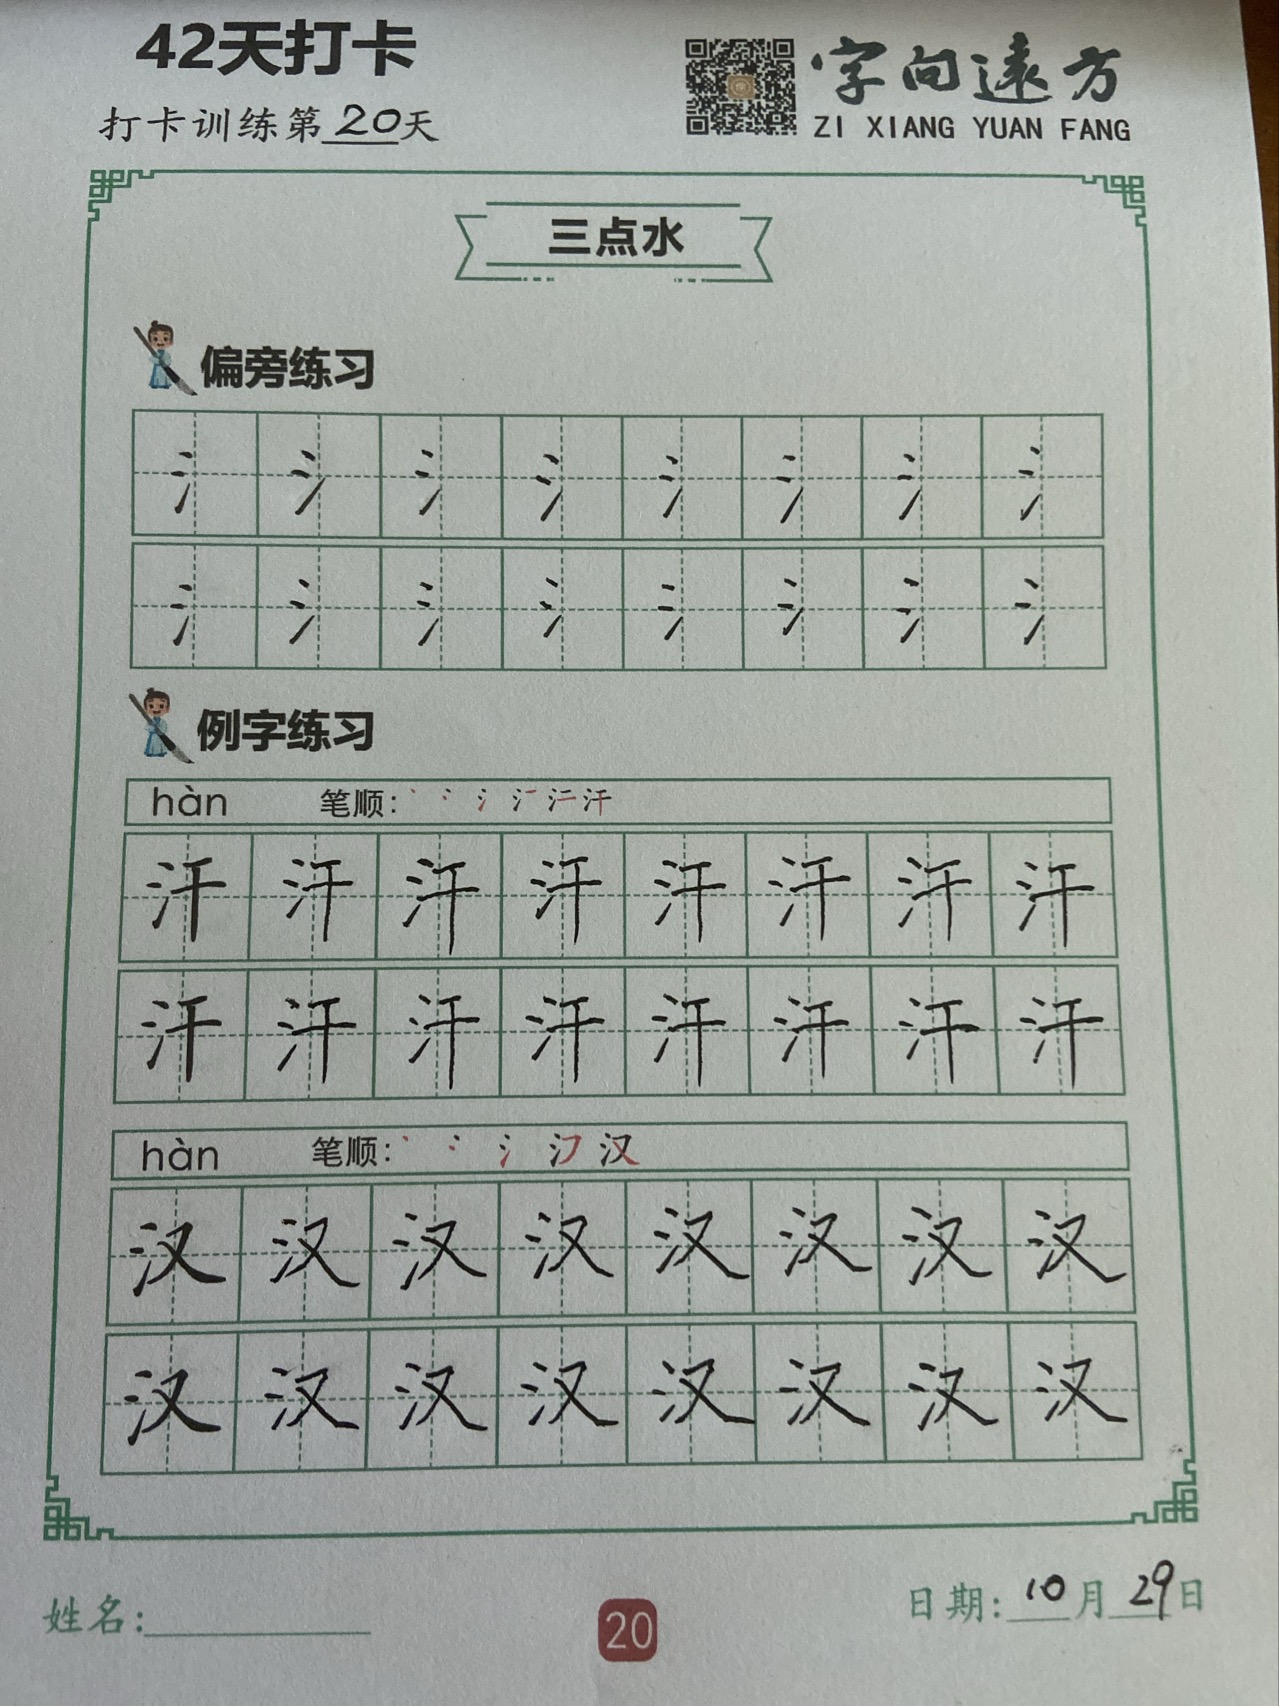 42天打卡
字向远方
打卡训练第20天
ZI XIANG YUAN FANG
三点水
偏旁练习
氵 氵 氵 氵 氵 氵 氵 氵
氵 氵 氵 氵 氵 氵 氵 氵
例字练习
hàn 笔顺: 丶 冫 氵 汗
汗 汗 汗 汗 汗 汗 汗 汗
汗 汗 汗 汗 汗 汗 汗 汗
hàn 笔顺: 丶 冫 氵 汉
汉 汉 汉 汉 汉 汉 汉 汉
汉 汉 汉 汉 汉 汉 汉 汉
姓名:
20
日期: 10月29日